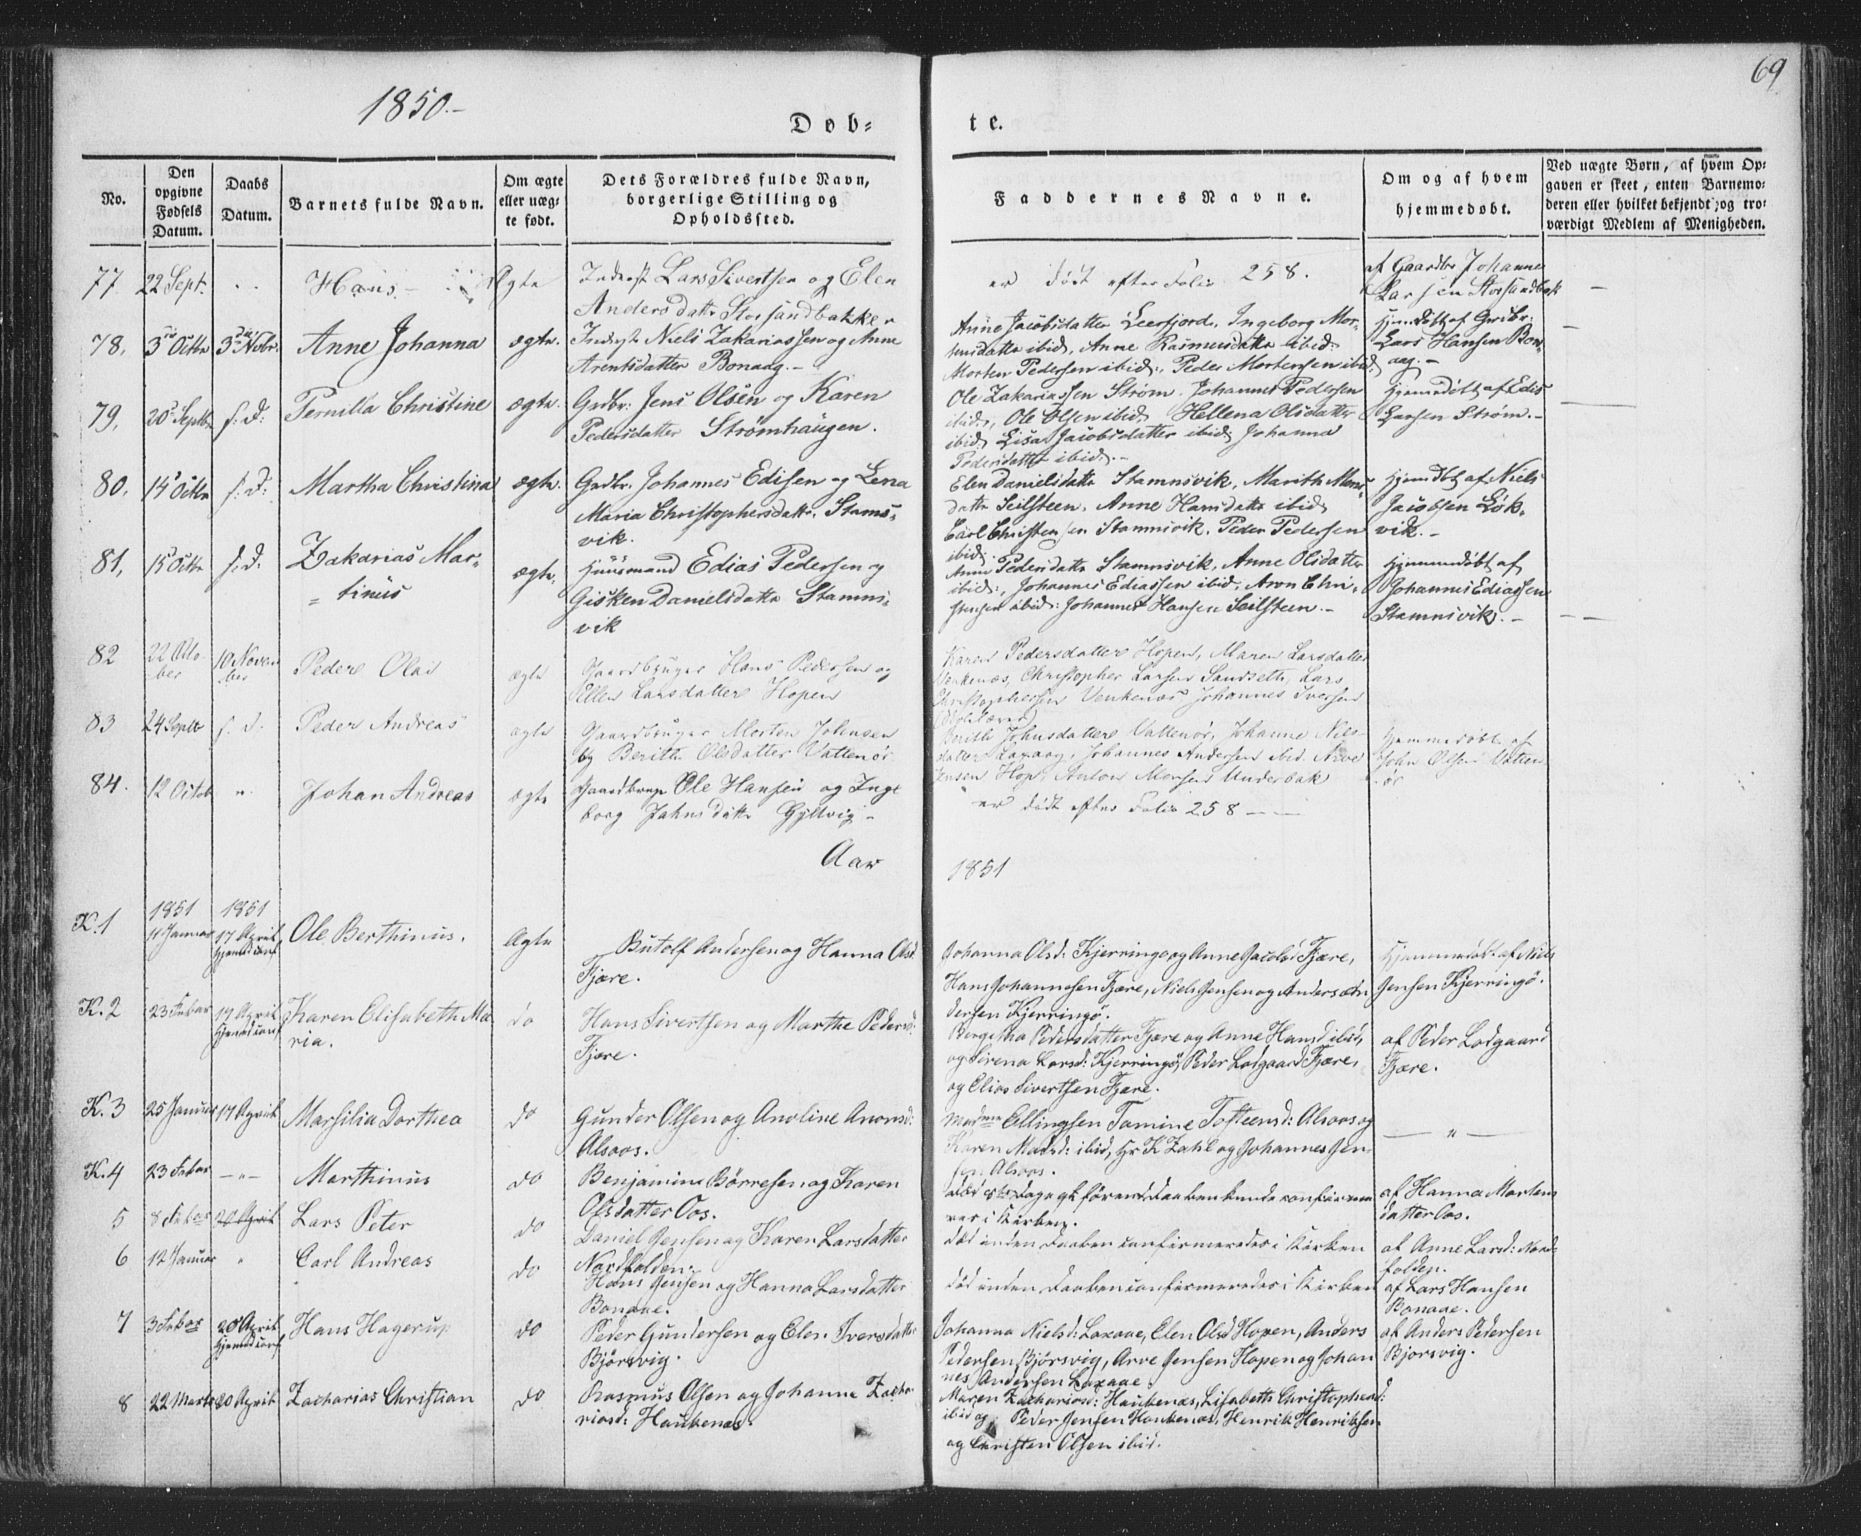 1850.-
69
Døb-
te.
No.
Den opgivne Fødsels Datum.
Daabs Datum.
Barnets fulde Navn.
Om ægte eller uægte født.
Dets Forældres fulde Navn, borgerlige Stilling og Opholdssted.
Faddernes Navne.
Om og af hvem hjemmedøbt.
Ved uægte Børn, af hvem Opgaven er skeet, enten Barnemoderen eller hvilket bekjendt og troværdigt Medlem af Menigheden.
77 22 Sept. Hans Ægte Inderst Lars Sivertsen og Elen
Andersdatr Storsandbakken
er død efter Folio 258.
af Gaardbr Johannes
Larsen Storsandbak
78. 3 Octbr 3 Novbr. Anne Johanna ægte. Inderst Niels Zakariassen og Anne
Arentsdatter Bonaag.-
Anne Jacobsdatter Leerfjord, Ingeborg Mor-
tensdatter ibid, Anne Rasmusdatter ibid
Morten Pedersen ibid, Peder Mortensen ibid
Hjemdøbt af Grdbr.
Lars Hansen Bon-
aag.-
79. 20 Septbr f. D: Pernilla Christine ægte. Grdbr. Jens Olsen og Karen
Pedersdatter Strømhaugen.
Ole Zakariassen Strøm. Johannes Pedersen
ibid, Ole Olsen ibid, Hellena Olsdatter
ibid, Lisa Jacobsdatter ibid, Johanna
Pedersdatter ibid.-
Hjemmedøbt af Edis
Larsen Strøm.-
80. 14 Octbr f. D: Martha Christina ægte. Grdbr. Johannes Edisen og Lena
Maria Christophersdatr. Stams-
vik.
Elen Danielsdatr Stamnsvik, Marith Mons-
datr Seilsteen. Anne Hansdatr ibid
Carl Christensen Stamnsvik. Peder Pedersen
ibid.
Hjemdøbt af Niels
Jacobsen Løk-
vik.-
81. 15 Octbr f. D. Zakarias Mar-
tinus
ægte. Huusmand Edias Pedersen og
Gisken Danielsdatr Stamns-
vik
Anne Pedersdatr Stamnsvik, Anne Olsdatter
ibid, Johannes Ediassen ibid, Aron Chri-
stensen ibid: Johannes Hansen Seilsteen.-
Hjemmedøbt af
Johannes Ediassen
Stamnsvik.-
82 22 Octo-
ber 10 Novem
ber Peder Olai ægte Gaardbruger Hans Pedersen og
Ellen Larsdatter Hopen
Karen Pedersdatter Hopen, Maren Larsdatter
Venkenæs, Christopher Larsen Sandseth, Lars
Christophersen Venkenæs Johannes Iversen
83 24 Septb f. d. Peder Andreas ægte Gaardbruger Morten Johnsen
og Berith Olsdatter Vattenør
Berith Johnsdatter Vattenør, Johanne Niels-
datter Laxaag, Johannes Andersen Ibid. Arve
Jensen Hop, Anton Monsen Underbak
Hjemmedøbt af
John Olsen Vatten-
ør
84. 12 Octob " Johan Andreas ægte Gaardbruger Ole Hansen og Inge
borg Jahnsdatr Gyltvig-
er død efter Folio 258
Aar
1851
K.1 1851
11 Januar 1851
17 April
Hjemd. conf Ole Berthinus. Ægte Butolf Andersen og Hanna Olsd.
Fjære.
Johanna Olsd: Kjerringø og Anne Jacobsd Fjære,
Hans Johannesen Fjære, Niels Jensen og Anders An-
dersen Kjerringø.
Hjemmedøbt af Niels
Jensen Kjerringø.
K.2 23 Febar 17 April
Hjemd. conf Karen Elisabeth Ma
ria.
do Hans Sivertsen og Marthe Pedersd:
Fjære.
Bergitha Pedersdatter Fjære og Anne Hansd ibid,
og Sirena Larsd: Kjerringø, Peder Lodgaard Fjære,
og Elias Sivertsen Fjære.
af Peder Lodgaard
Fjære.
K.3 25 Januar 17 April Marsilia Dorthea do Gunder Olsen og Anoline Aronsd:
Alsaas.
Madme Ellingsen Tamine Tosteensd: Alsaas og
Karen Madsd: ibid, Hr K Zahl og Johannes Jen-
sen Alsaas.
K.4 23 Febar Marthinus do Benjamin Børresen og Karen
Olsdatter Oos.
død 8te Dage gl. førend Daaben kunde confirme
res i Kirken.
af Hanna Martens
datter Oos.
5 8 Febar 20 April Lars Peter do Daniel Jensen og Karen Larsdatter
Nordfolden.
død inden Daaben confirmeredes i Kirken
af Anne Larsd: Nord
folden.
6 12 Januar " Carl Andreas do Hans Jensen og Hanna Larsdatter
Bonaae.
død inden Daaben confirmeredes i Kirken
af Lars Hansen
Bonaae.
7 3 Febar 20 April
Hjemd. conf Hans Hagerup do Peder Gundersen og Elen Iversdatter
Bjørsvig.
Johanna Nielsd: Laxaae, Elen Olsd Hopen, Anders
Pedersen Bjørsvig, Arve Jensen Hopen og Johan
nes Andersen Laxaae.
af Anders Pedersen
Bjørsvig.
8 22 Marts 20 April Zacharias Christian do Rasmus Olsen og Johanna Zacha
riasd: Haukenæs.
Maren Zachariasd: Haukenæs, Lisabeth Christophersd:
ibid og Peder Jensen Haukenæs, Henrik Henriksen
og Christen Olsen ibid.